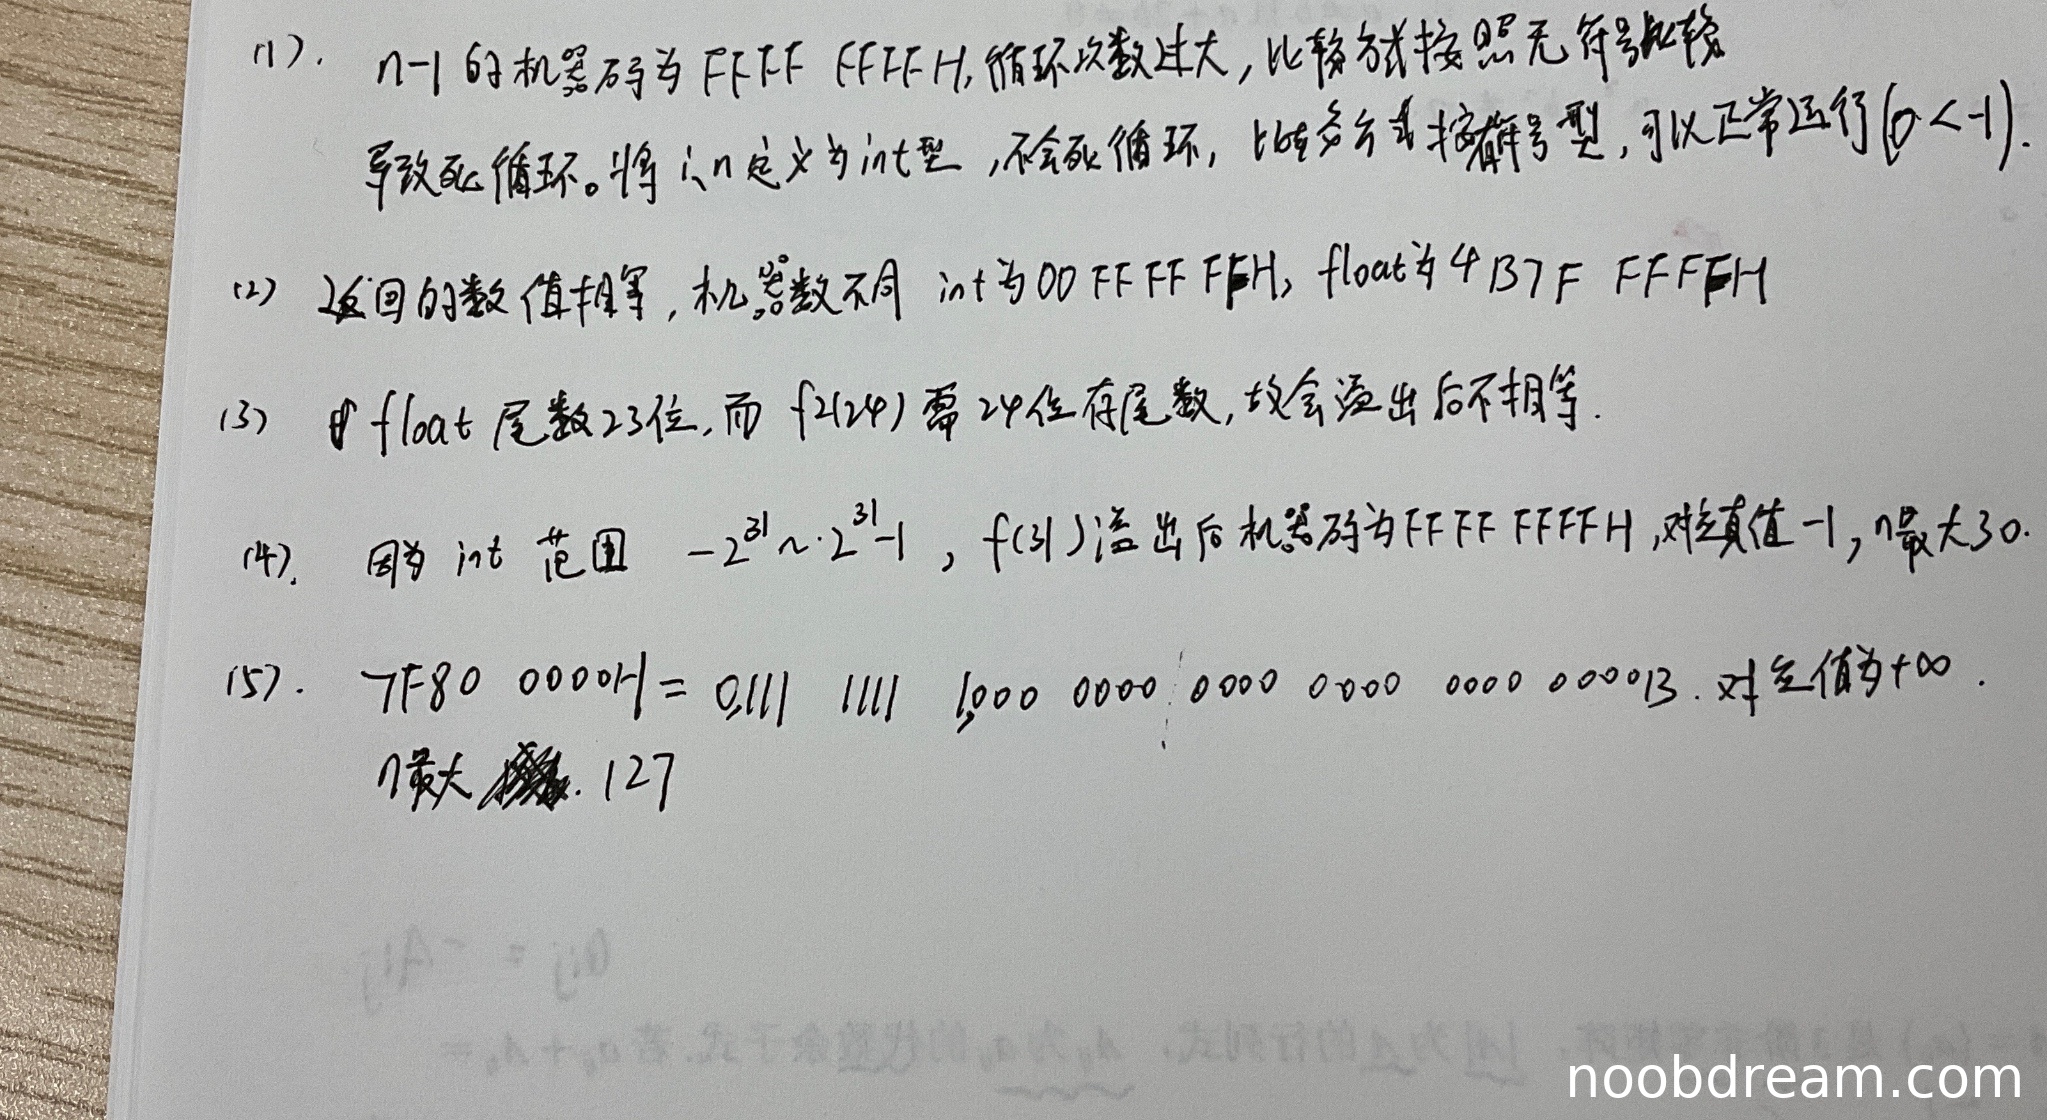 (1). n-1的机器码为FFFF FFFFH,循环次数过大,比较方式按照无符号比较
导致死循环。将i、n定义为int型,不会死循环,比较方式按有符号型,可以正常运行(0<-1).
(2) 返回的数值相等,机器数不同 int为00FF FFFFH, float为4B7F FFFFH
(3) float尾数23位,而f2(24)需24位存尾数,故会溢出后不相等.
(4). 因为int范围 -2^31~2^31-1, f(31)溢出后机器码为FFFF FFFFH,对应真值-1, n最大30.
(5). 7F80 0000H = 0,111 1111 1,000 0000 0000 0000 0000 0000B. 对应值为+∞.
n最大 127
aij = -Aij
noobdream.com